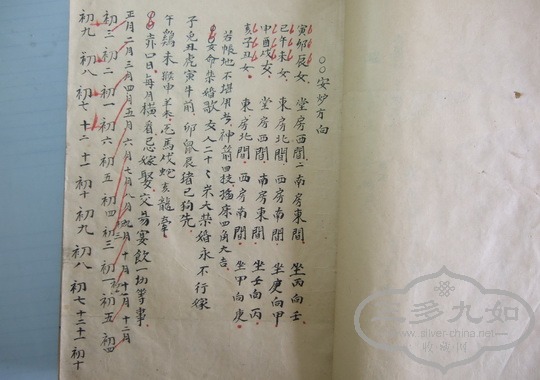 ○○安炒方向
寅卯辰女 堂房西間 二南房東間 坐丙向壬
巳午未女 東房北間 西房南間 坐庚向甲
申酉戌女 堂房東間 南房西間 坐壬向丙
亥子丑女 東房南間 西房北間 坐甲向庚
若帳地不堪用者 神箭四枝 搖床四角大吉
女命禁婚歌 女人二十 大禁婚永不行嫁
子兔丑虎寅牛前 卯鼠辰 巳狗先
午鷄未猴申羊未 馬戌蛇亥龍牽
每月橫看忌嫁娶交易宴飲一切等事
正月二月三月四月五月六月七月八月九月十月十一月十二月
初三 初二 初一 初六 初五 初四 初三 初二 初一 初五 初四
初九 初八 初七 十二 十一 初十 初九 初八 初七 十二 十一 初十
來多九如
www.silver-china.net
收藏网